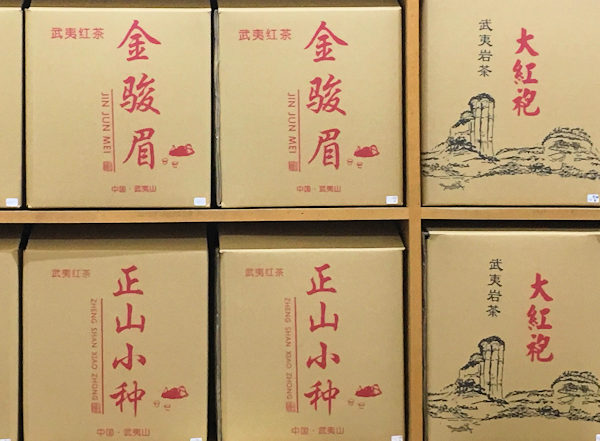 武夷红茶
金骏眉
JIN JUN MEI
中国·武夷山
武夷红茶
金骏眉
JIN JUN MEI
中国·武夷山
武夷岩茶
大紅袍
武夷红茶
正山小种
ZHENG SHAN XIAO ZHONG
中国·武夷山
武夷红茶
正山小种
ZHENG SHAN XIAO ZHONG
中国·武夷山
武夷岩茶
大紅袍